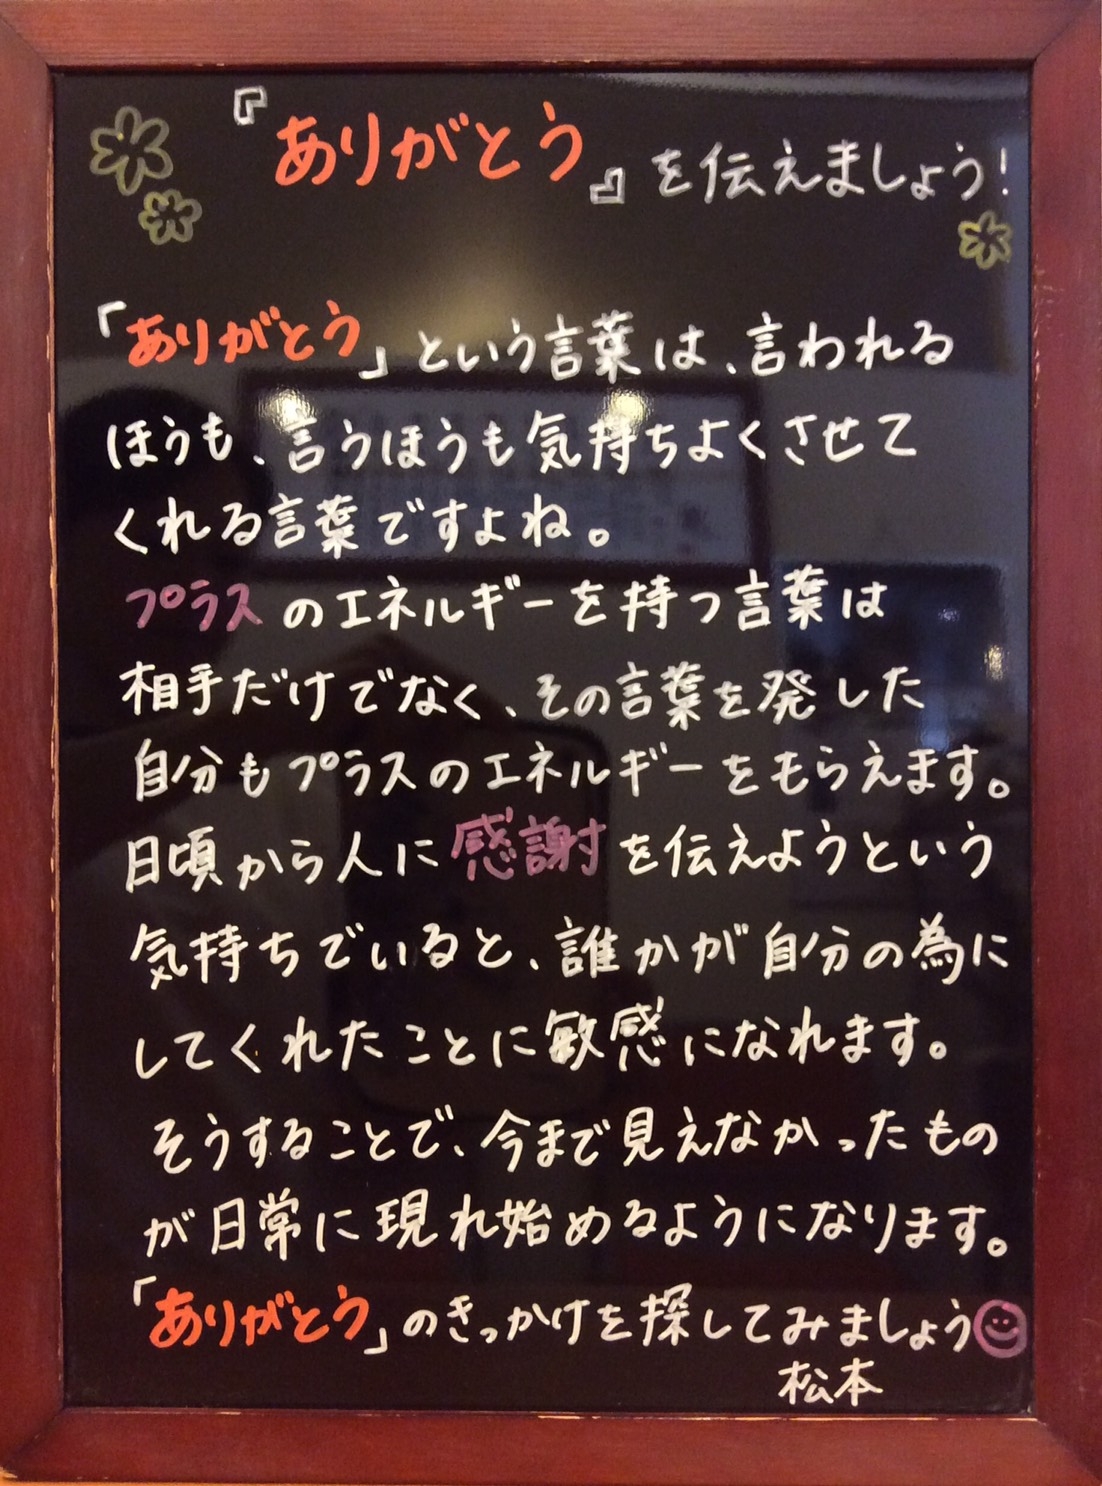 『ありがとう』を伝えましょう!
「ありがとう」という言葉は、言われる
ほうも、言うほうも気持ちよくさせて
くれる言葉ですよね。
プラスのエネルギーを持つ言葉は
相手だけでなく、その言葉を発した
自分もプラスのエネルギーをもらえます。
日頃から人に感謝を伝えようという
気持ちでいると、誰かが自分の為に
してくれたことに敏感になれます。
そうすることで、今まで見えなかったもの
が日常に現れ始めるようになります。
「ありがとう」のきっかけを探してみましょう
松本